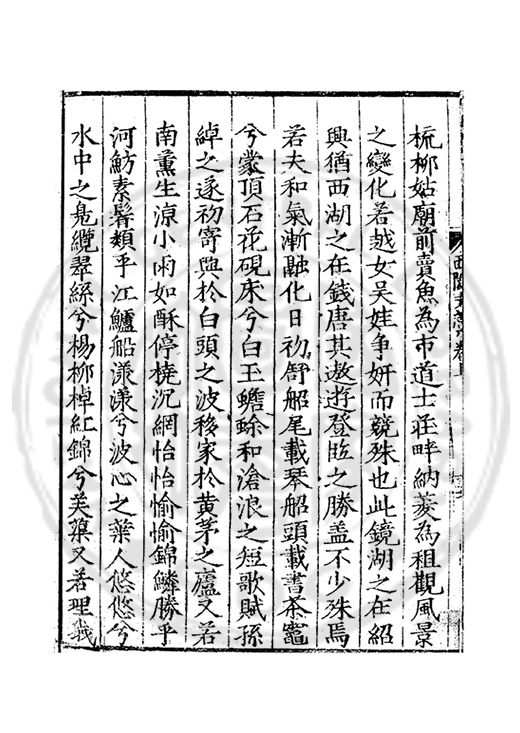 梳柳姑廟前賣魚為市道士莊畔納菱為租觀風景
之變化若越女吳娃爭妍而競殊也此鏡湖之在紹
興猶西湖之在錢唐其遨遊登臨之勝蓋不少殊焉
若夫和氣漸融化日初舒船尾載琴船頭載書茶竈
兮蒙頂石花硯床兮白玉蟾蜍和滄浪之短歌賦孫
綽之遂初寄與於白頭之波移家於黃茅之廬又若
南薰生涼小雨如酥停橈沉網怡怡愉愉錦鱗勝乎
河魴素鬐類乎江鱸船漾漾兮波心之葉人悠悠兮
水中之鳧纜翠絲兮楊柳棹紅錦兮芙蕖又若理我